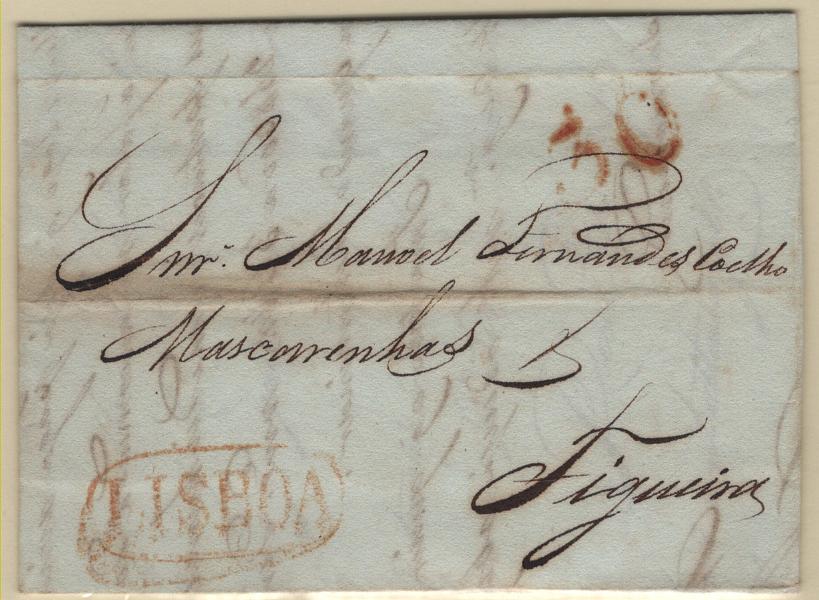 30
Snr. Manoel Fernandes Coelho
Mascarenhas
Figueira
LISBOA